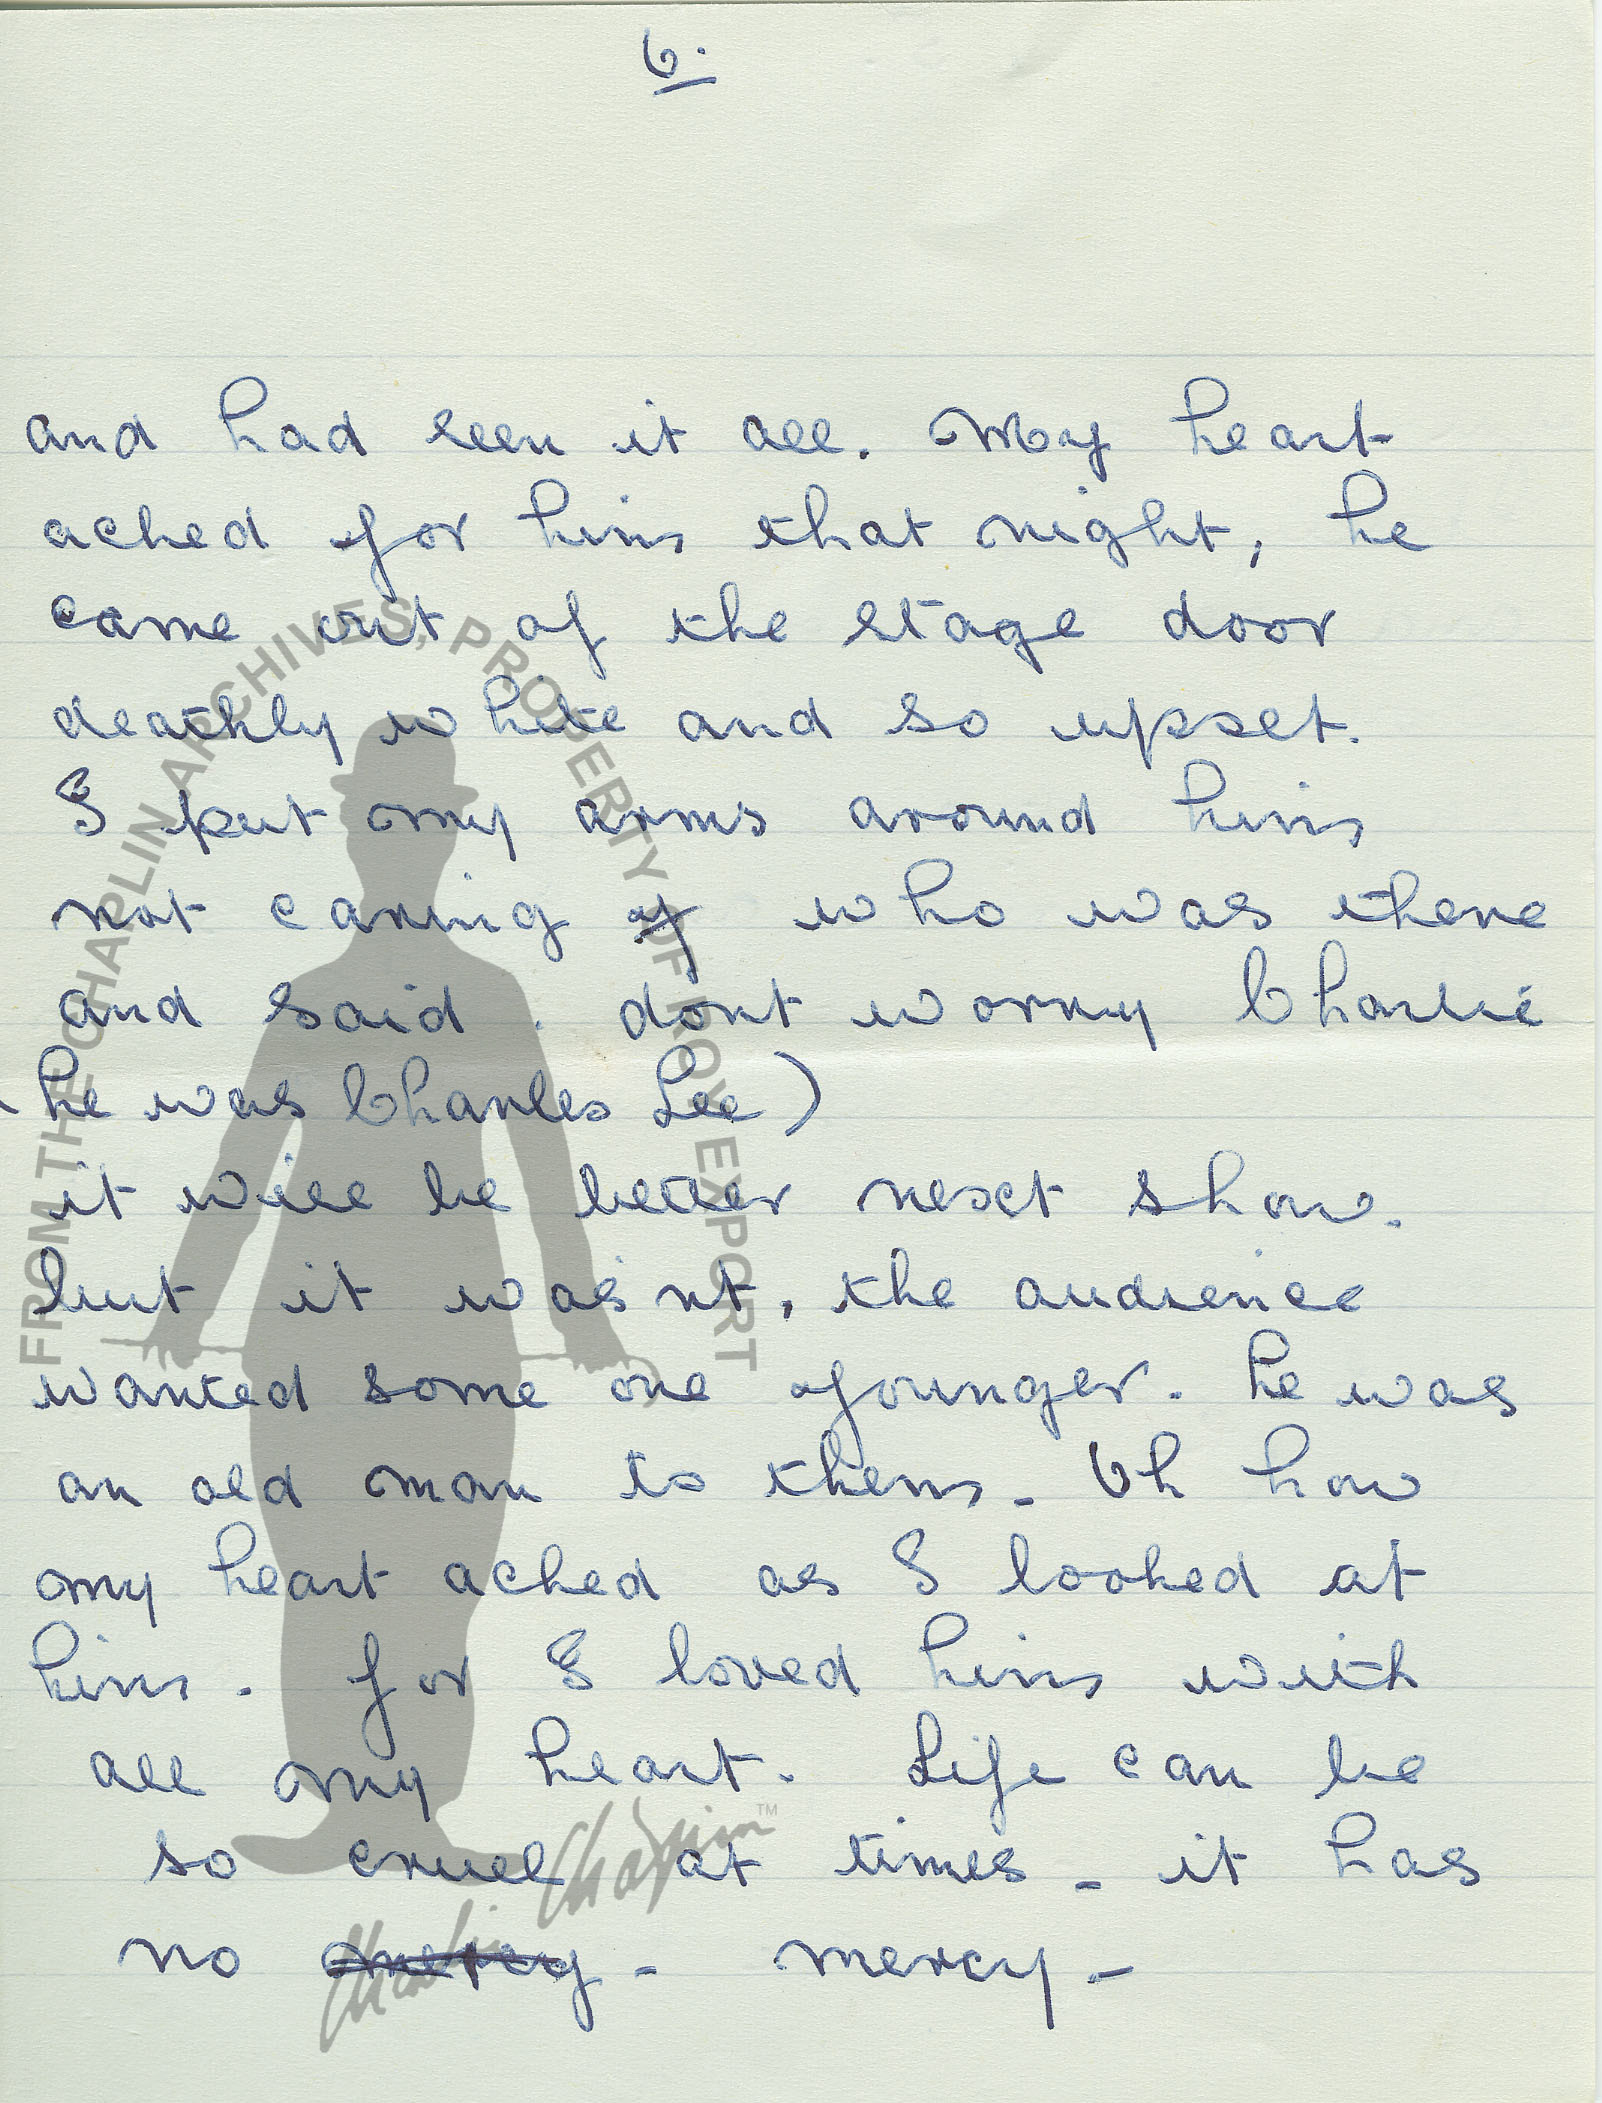 6.
and had seen it all. My heart
ached for him that night, he
came out of the stage door
deathly white and so upset.
I put my arms around him
not caring of who was there
and said. dont worry Charlie
(he was Charles Lee)
it will be better next show.
but it was'nt, the audience
wanted some one younger. he was
an old man to them - Oh how
my heart ached as I looked at
him. for I loved him with
all my heart. Life can be
so cruel at times - it has
no mercy - mercy -
FROM THE CHAPLIN ARCHIVES, PROPERTY OF ROY EXPORT
Charlie Chaplin™